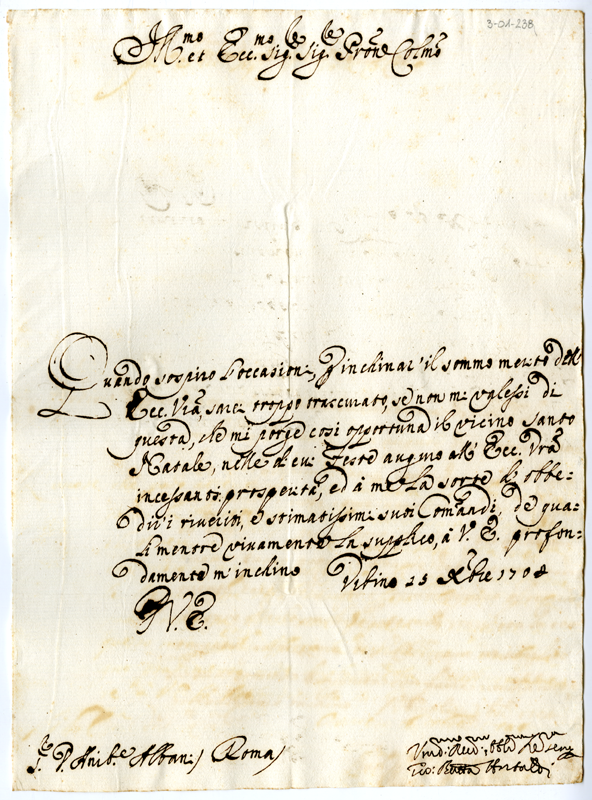 3-01-238
Ill.mo et Ecc.mo Sig.re Sig.re Pron.e Colmo
Quando sospiro l'occasione, d'inchinar il sommo merito dell'
Ecc. Vrã, sarei troppo traccurato, se non mi valessi di
questa, che mi porge così opportuna il vicino Santo
Natale, nelle di cui feste auguro all' Ecc. Vrã
incessanti prosperità, ed à me la sorte di obbe-
dir i riveriti, e stimatissimi suoi Comandi, de qua-
li mentre vivamente la supplico, à V. E. profon-
damente m'inchino Vrbino 23 Xbre 1708
D V. E.
Anib.e Albani Roma
Gio: Batta Antaldi